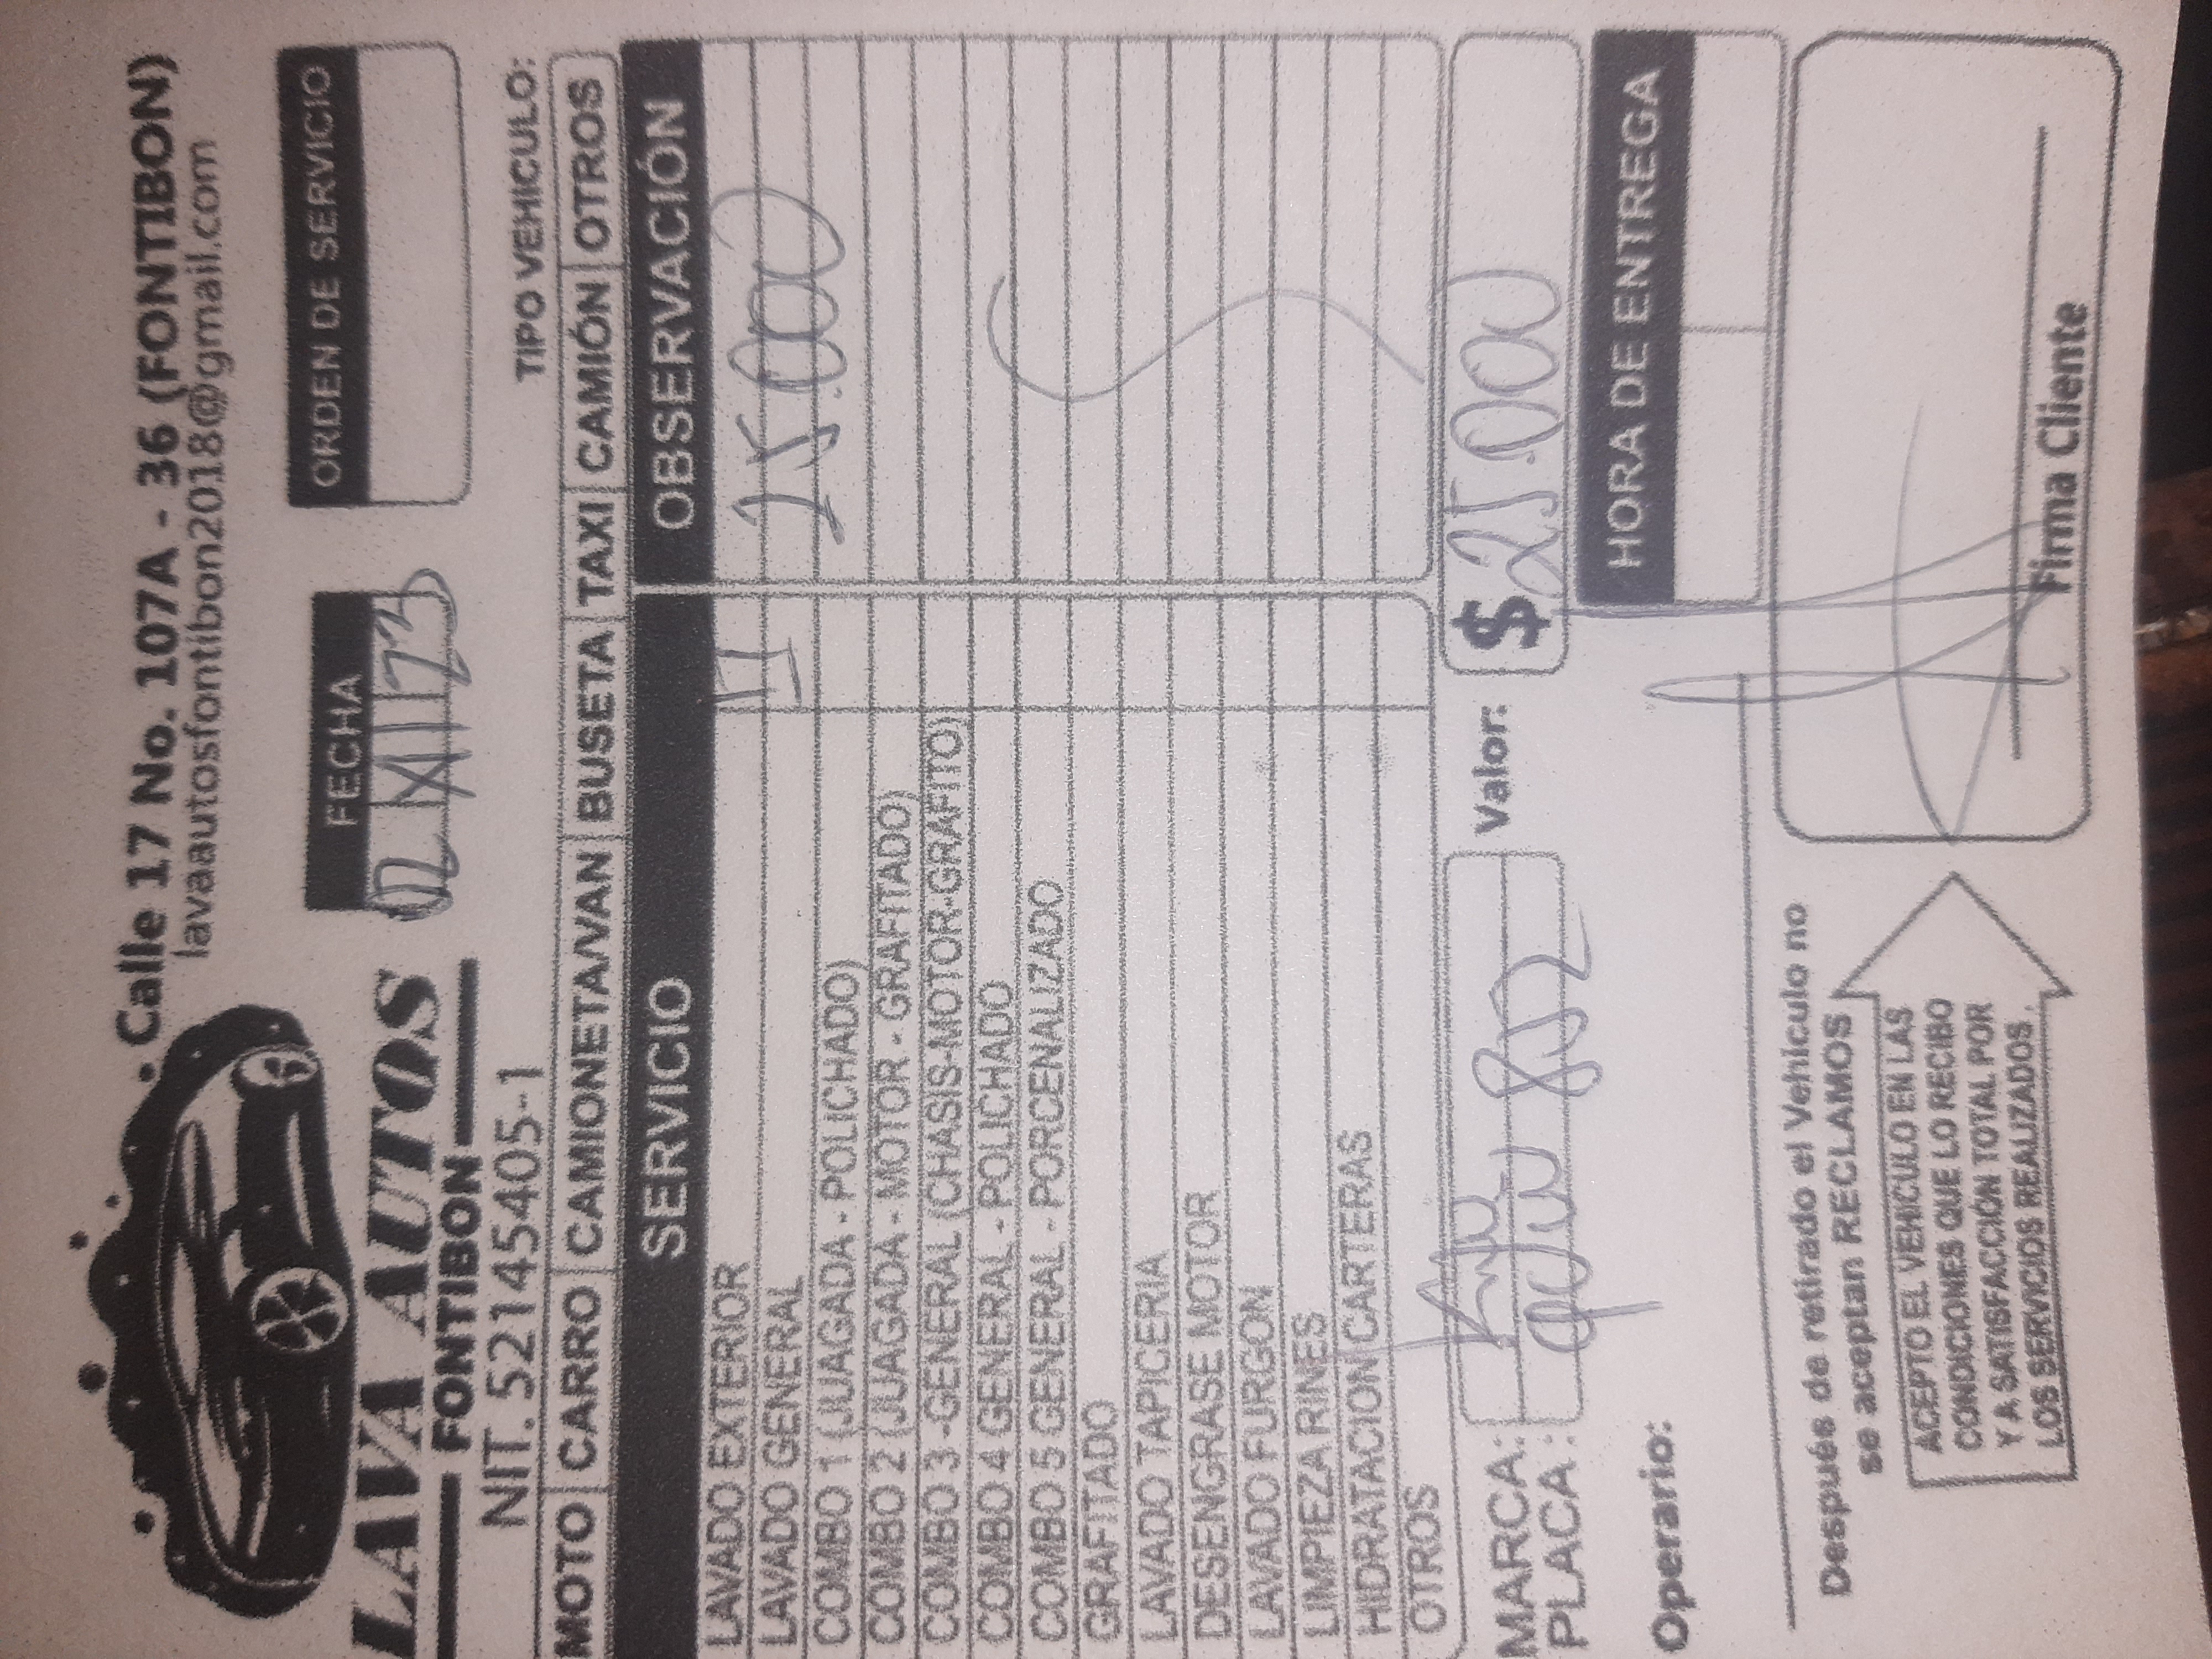 Calle 17 No. 107A - 36 (FONTIBON)
lavaautosfontibon2018@gmail.com
LAVA AUTOS
FONTIBON
NIT. 52145405-1
FECHA
02 XII 23
ORDEN DE SERVICIO
TIPO VEHICULO:
MOTO CARRO CAMIONETA/VAN BUSETA TAXI CAMIÓN OTROS
SERVICIO OBSERVACIÓN
LAVADO EXTERIOR
LAVADO GENERAL 25.000
COMBO 1 (JUAGADA - POLICHADO)
COMBO 2 (JUAGADA - MOTOR - GRAFITADO)
COMBO 3 -GENERAL (CHASIS-MOTOR-GRAFITO)
COMBO 4 GENERAL - POLICHADO
COMBO 5 GENERAL - PORCENALIZADO
GRAFITADO
LAVADO TAPICERIA
DESENGRASE MOTOR
LAVADO FURGON
LIMPIEZA RINES
HIDRATACION CARTERAS
OTROS
MARCA:
PLACA:
Valor: $ 25.000
Operario:
HORA DE ENTREGA
Después de retirado el Vehiculo no
se aceptan RECLAMOS
ACEPTO EL VEHICULO EN LAS
CONDICIONES QUE LO RECIBO
Y A SATISFACCIÓN TOTAL POR
LOS SERVICIOS REALIZADOS.
Firma Cliente